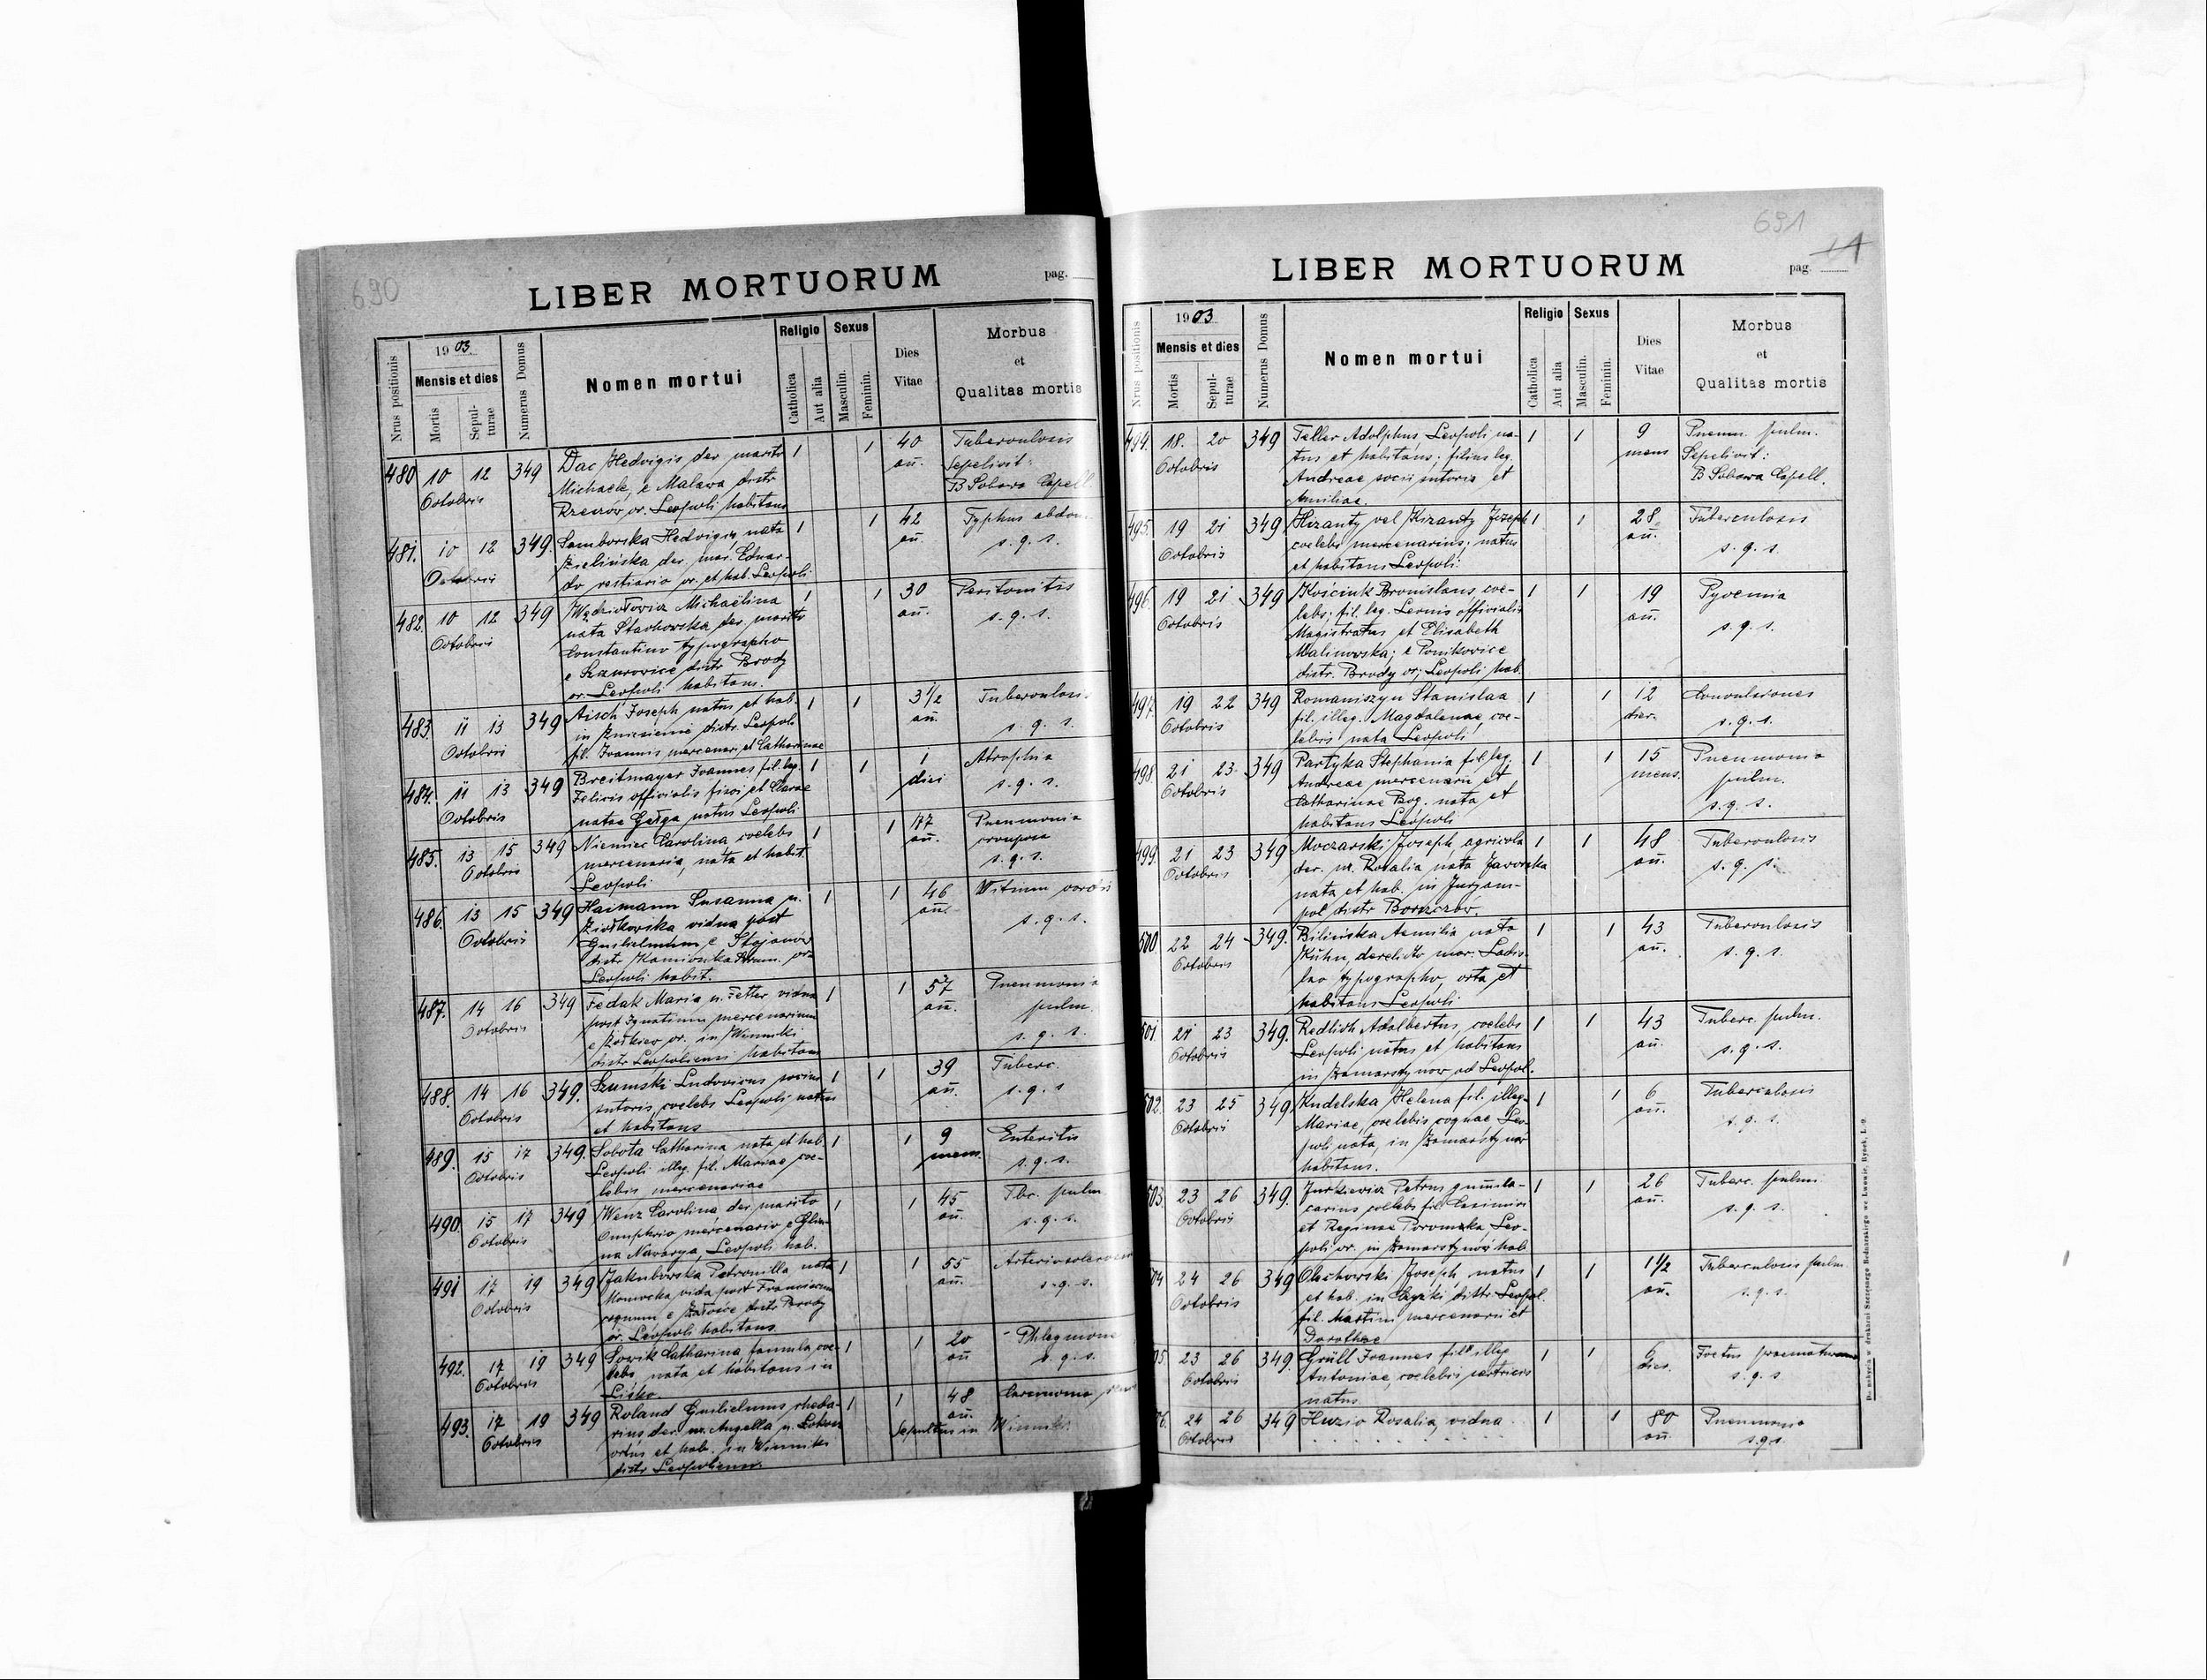 690
LIBER MORTUORUM
pag.
Nrus positionis
1903
Mensis et dies
Mortis
Sepulturae
Numerus Domus
Nomen mortui
Religio
Catholica
Aut alia
Sexus
Masculin.
Feminin.
Dies
Vitae
Morbus
et
Qualitas mortis
480 10 12 349 Dac Hedvigis der. marito 1 1 40 Tuberculosis
Octobris Michaele, e Malawa distr. an. Sepelivit:
Rzeszów or. Leopoli habitans B Sobawa Capell.
481. 10 12 349. Samborska Hedvigis nata 1 1 42 Typhus abdom.
Octobris Zielińska der. mar. Eduar- an. s. q. s.
do vestiario or. et hab. Leopoli
482. 10 12 349 Michaëlina 1 1 30 Peritonitis
Octobris nata Stachowska der. marito an. s. q. s.
Constantino typographo
e Szczurowice distr. Brody
or. Leopoli habitans.
483. 11 13 349 Aisch Joseph natus et hab. 1 1 3 1/2 Tuberculosis
Octobris in Zniesienie distr. Leopol. an. s. q. s.
fil. Joannis mercenar. et Catharinae
484. 11 13 349 Breitmayer Joannes fil. leg. 1 1 1 Atrophia
Octobris Felicis officialis fisci et Clarae diei s. q. s.
natae natus Leopoli
485. 13 15 349 Niemiec Carolina coelebs 1 1 77 Pneumonia
Octobris mercenaria, nata et habit. an. crouposa
Leopoli s. q. s.
486. 13 15 349 Haimann Susanna n. 1 1 46 Vitium cordis
Octobris Ziołkowska vidua post an. s. q. s.
Guilielmum e Stojanów
distr. Kamionka Strum. or.
Leopoli habit.
487. 14 16 349 Fedak Maria n. Fetter vidua 1 1 57 Pneumonia
Octobris post Ignatium mercenarium an. pulm.
e Żółkiew or. in Winniki s. q. s.
distr. Leopoliensi habitans
488. 14 16 349. Szumski Ludovicus socius 1 1 39 Tuberc.
Octobris sutoris, coelebs Leopoli natus an. s. q. s
et habitans
489. 15 17 349. Sobota Catharina nata et hab. 1 1 9 Enteritis
Octobris Leopoli illeg. fil. Mariae coe- mens. s. q. s.
lebis mercenariae
490. 15 17 349 Wenz Carolina der. marito 1 1 45 Tbc. pulm
Octobris Onuphrio mercenario e Glin- an. s. q. s.
na Navarya, Leopoli hab.
491 17 19 349 Jakubowska Petronilla nata 1 1 55
Octobris vidua post Franciscum an. s. q. s.
coquum e distr. Brody
or. Leopoli habitans
492. 17 19 349 Sowik Catharina famula coe- 1 1 20 Phlegmone
Octobris lebs, nata et habitans in an s. q. s.
Lisko.
493. 17 19 349 Roland Guilielmus rheda- 1 1 48
Octobris rius der. ux. Angella n. an. Sepultus in Winniki
ortus et hab. in Winniki
distr. Leopoliensi.
691
LIBER MORTUORUM
pag.
Nrus positionis
1903
Mensis et dies
Mortis
Sepulturae
Numerus Domus
Nomen mortui
Religio
Catholica
Aut alia
Sexus
Masculin.
Feminin.
Dies
Vitae
Morbus
et
Qualitas mortis
494. 18. 20 349 Teller Adolphus, Leopoli na- 1 1 9 Pneum. pulm.
Octobris tus et habitans; filius leg. mens Sepelivit:
Andreae socii sutoris et B Sobawa Capell.
Aemiliae
495. 19 21 349 Hizanty vel Kizanty Joseph 1 1 28 Tuberculosis
Octobris coelebs mercenarius; natus an. s. q. s.
et habitans Leopoli.
496. 19 21 349 Kościuk Bronislaus, coe- 1 1 19 Pyoemia
Octobris lebs; fil. leg. Leonis officialis an. s. q. s.
Magistratus et Elisabeth
Malinowska; e Ponikowice
distr. Brody or; Leopoli hab.
497. 19 22 349 Romaniszyn Stanislaa 1 1 12 Convulsiones
Octobris fil. illeg. Magdalenae coe- dier. s. q. s.
lebis nata Leopoli
498 21 23. 349 Partyka Stephania fil. leg. 1 1 15 Pneumonia
Octobris Andreae mercenarii et mens. pulm.
Catharinae Bog. nata et s. q. s.
habitans Leopoli
499. 21 23 349 Moczarski Joseph, agricola 1 1 48 Tuberculosis
Octobris der. ux. Rosalia nata Javorska an. s. q. s.
nata et hab. in Jurjam-
pol distr. Borszczów.
500 22 24 349. Bilińska Aemilia nata 1 1 43 Tuberculosis
Octobris Kühn, derelicto mar. Ladis- an. s. q. s.
lao typographo, orta et
habitans Leopoli
501. 21 23 349. Redlich Adalbertus, coelebs 1 1 43 Tuberc. pulm.
Octobris Leopoli natus et habitans an. s. q. s.
in Zamarstynow ad Leopol.
502. 23 25 349 Kudelska Helena fil. illeg. 1 1 6 Tuberculosis
Octobris Mariae, coelebis coquae, Leo- an. s. q. s.
poli nata, in Zamarstynow
habitans.
503. 23 26 349. Jurkiewicz Petrus 1 1 26 Tuberc. pulm.
Octobris coelebs fil. Casimiri an. s. q. s.
et Reginae Poromska, Leo-
poli or. in Zamarstynów hab
504 24 26 349 Olschowski Joseph, natus 1 1 1 1/2 Tuberculosis pulm.
Octobris et hab. in distr. Leopol. an. s. q. s.
fil. Martini mercenarii et
Dorothae
505 23 26 349 Grüll Joannes fil. illeg 1 1 6 Foetus praematurus
Octobris Antoniae, coelebis dies. s. q. s.
natus
506. 24 26 349 Huzio Rosalia, vidua 1 1 80 Pneumonia
Octobris an. s.q.s.